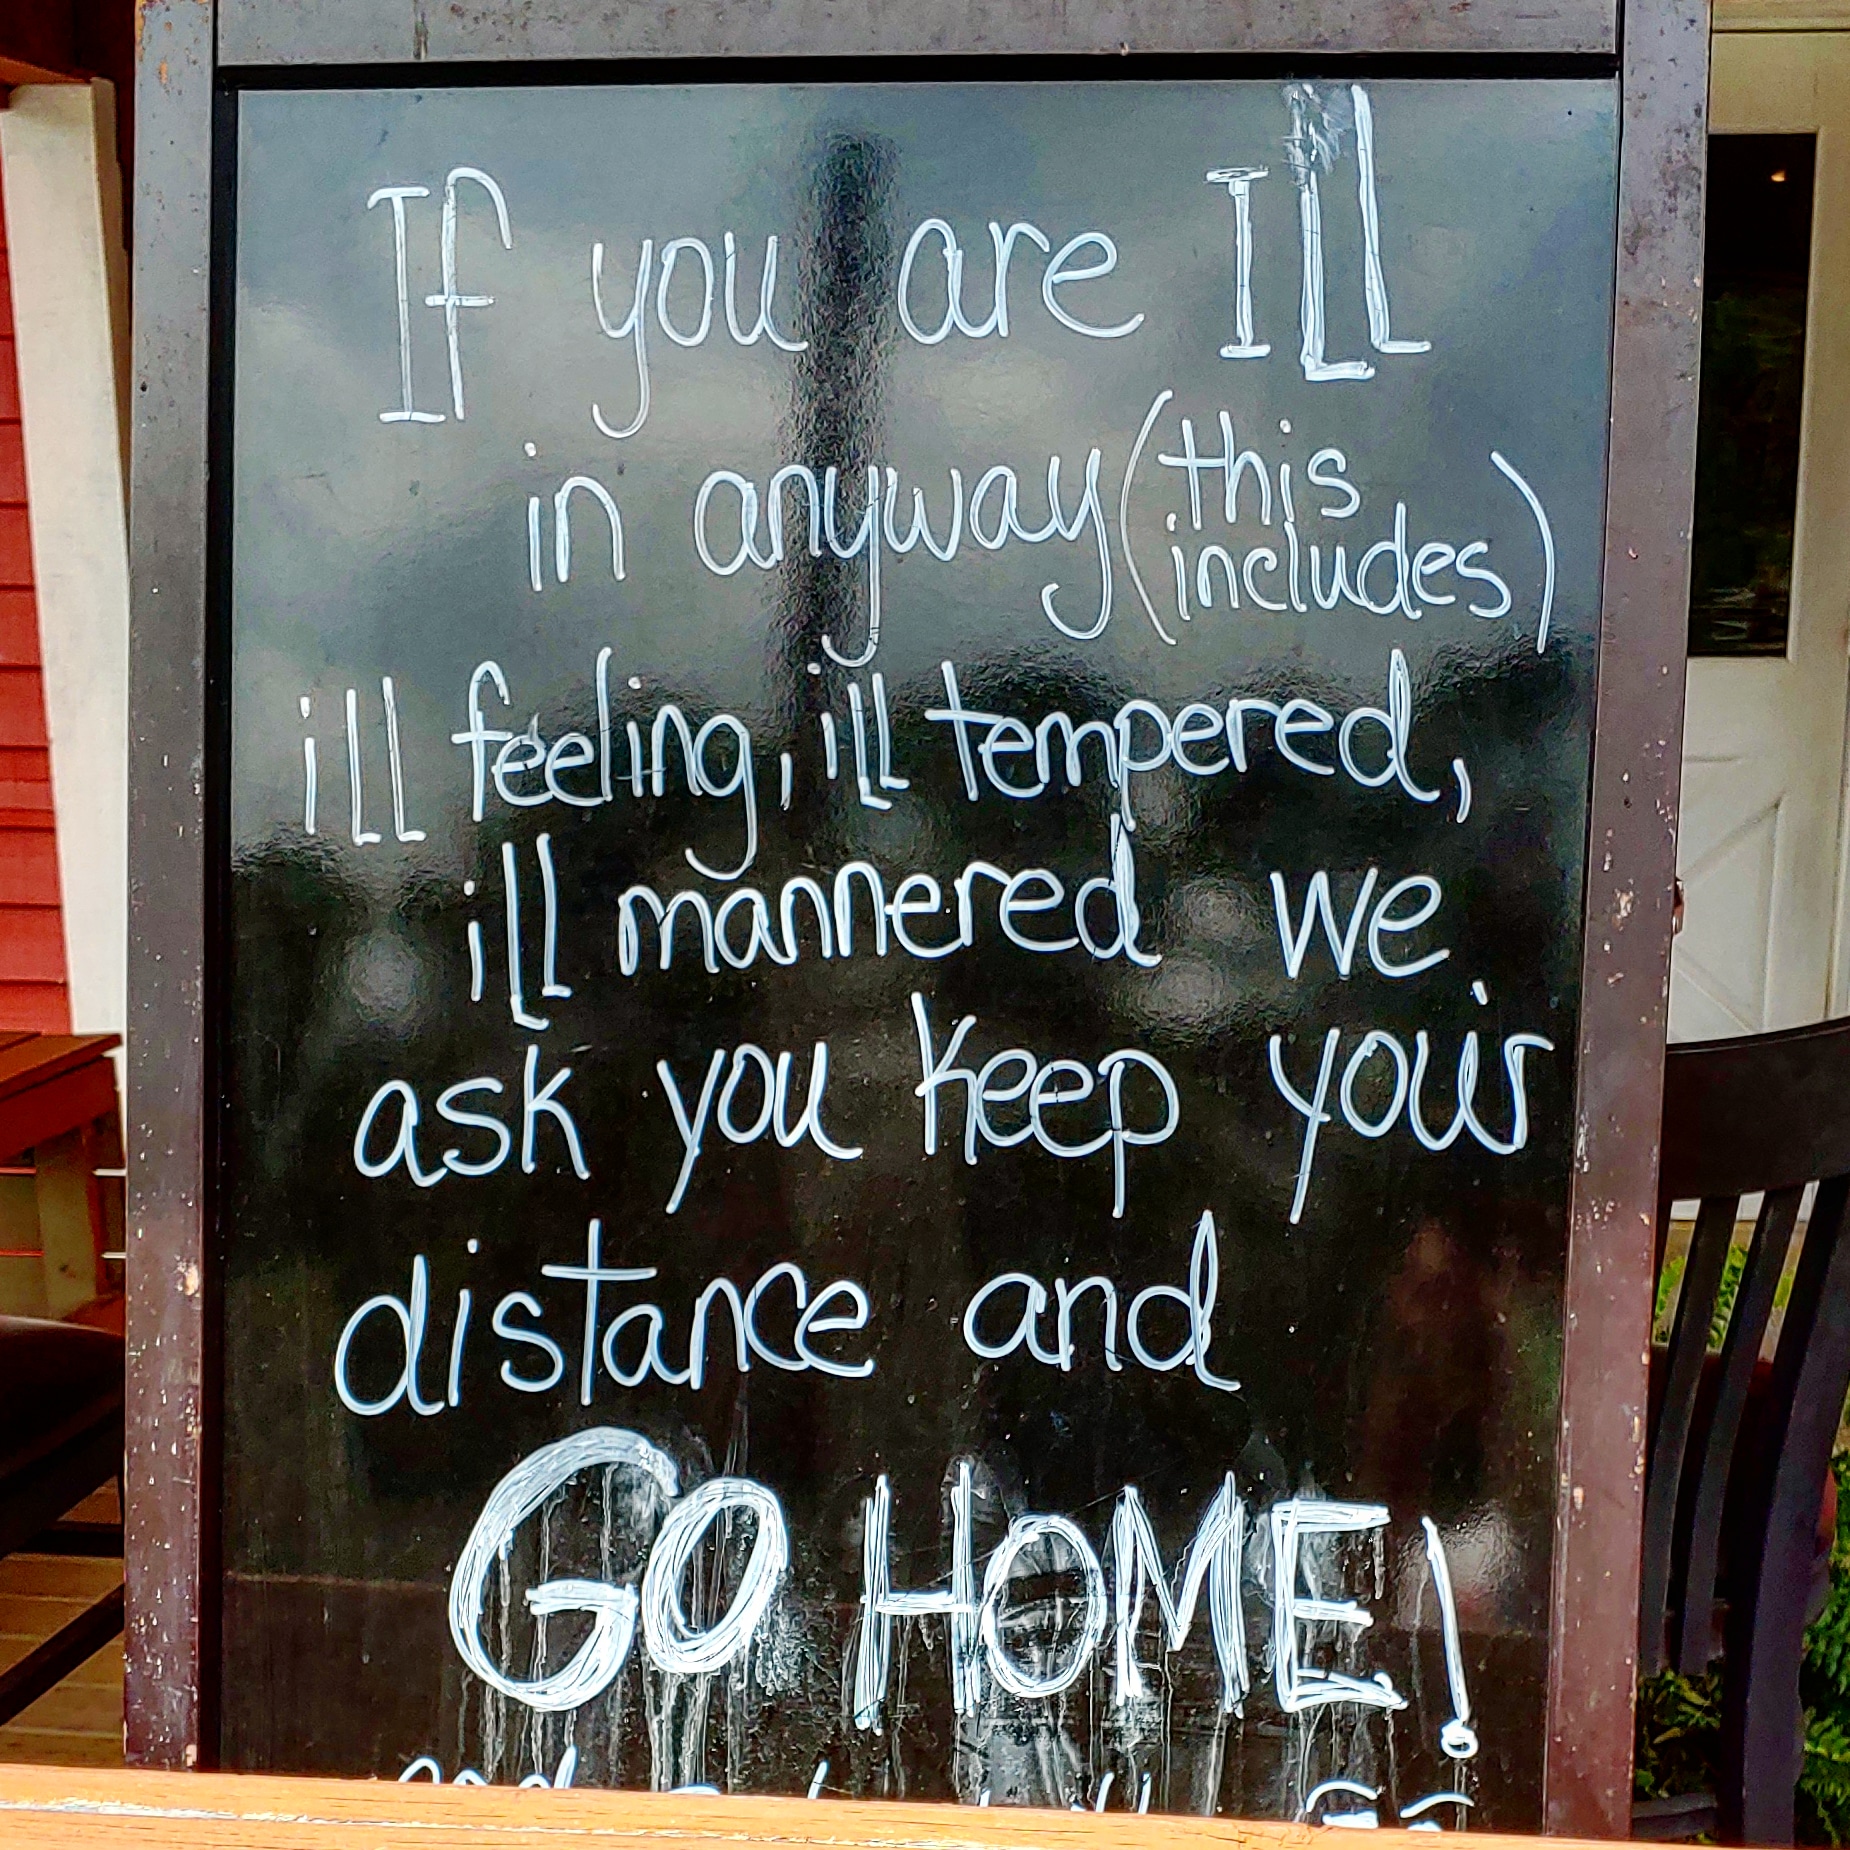 If you are ILL
in anyway (this includes)
ill feeling, ill tempered,
ill mannered we
ask you keep your
distance and
GO HOME!
and